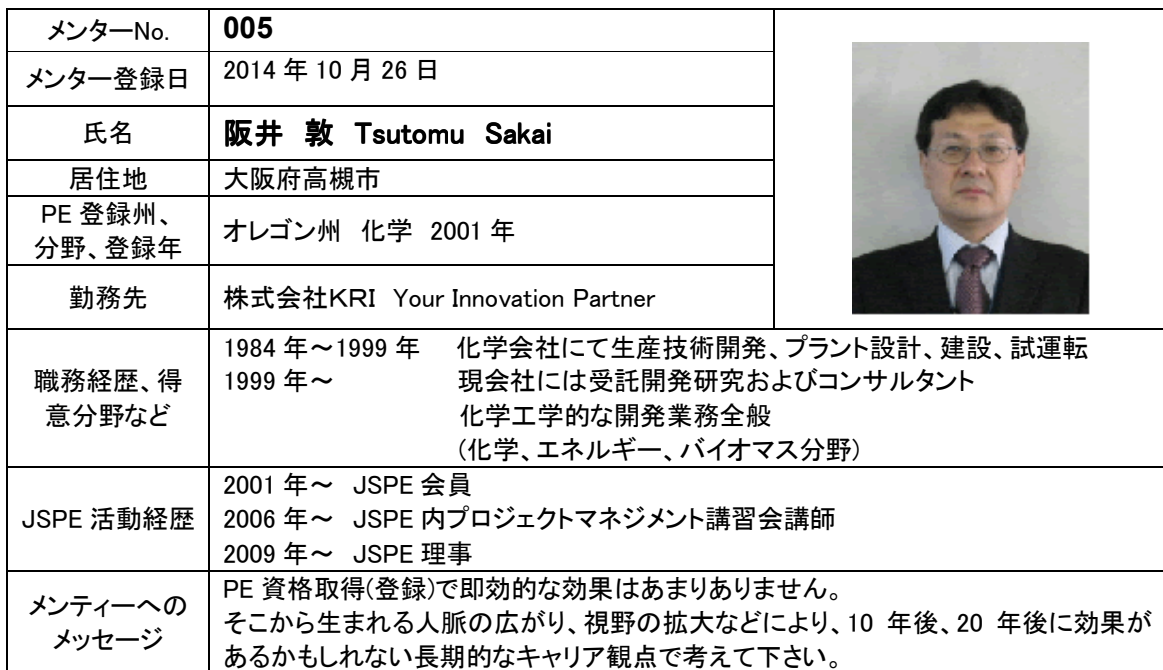 メンターNo. 005
メンター登録日 2014 年 10 月 26 日
氏名 阪井 敦 Tsutomu Sakai
居住地 大阪府高槻市
PE 登録州、
分野、登録年
オレゴン州 化学 2001 年
勤務先 株式会社KRI Your Innovation Partner
職務経歴、得
意分野など
1984 年～1999 年 化学会社にて生産技術開発、プラント設計、建設、試運転
1999 年～ 現会社には受託開発研究およびコンサルタント
化学工学的な開発業務全般
(化学、エネルギー、バイオマス分野)
JSPE 活動経歴
2001 年～ JSPE 会員
2006 年～ JSPE 内プロジェクトマネジメント講習会講師
2009 年～ JSPE 理事
メンティーへの
メッセージ
PE 資格取得(登録)で即効的な効果はあまりありません。
そこから生まれる人脈の広がり、視野の拡大などにより、10 年後、20 年後に効果が
あるかもしれない長期的なキャリア観点で考えて下さい。